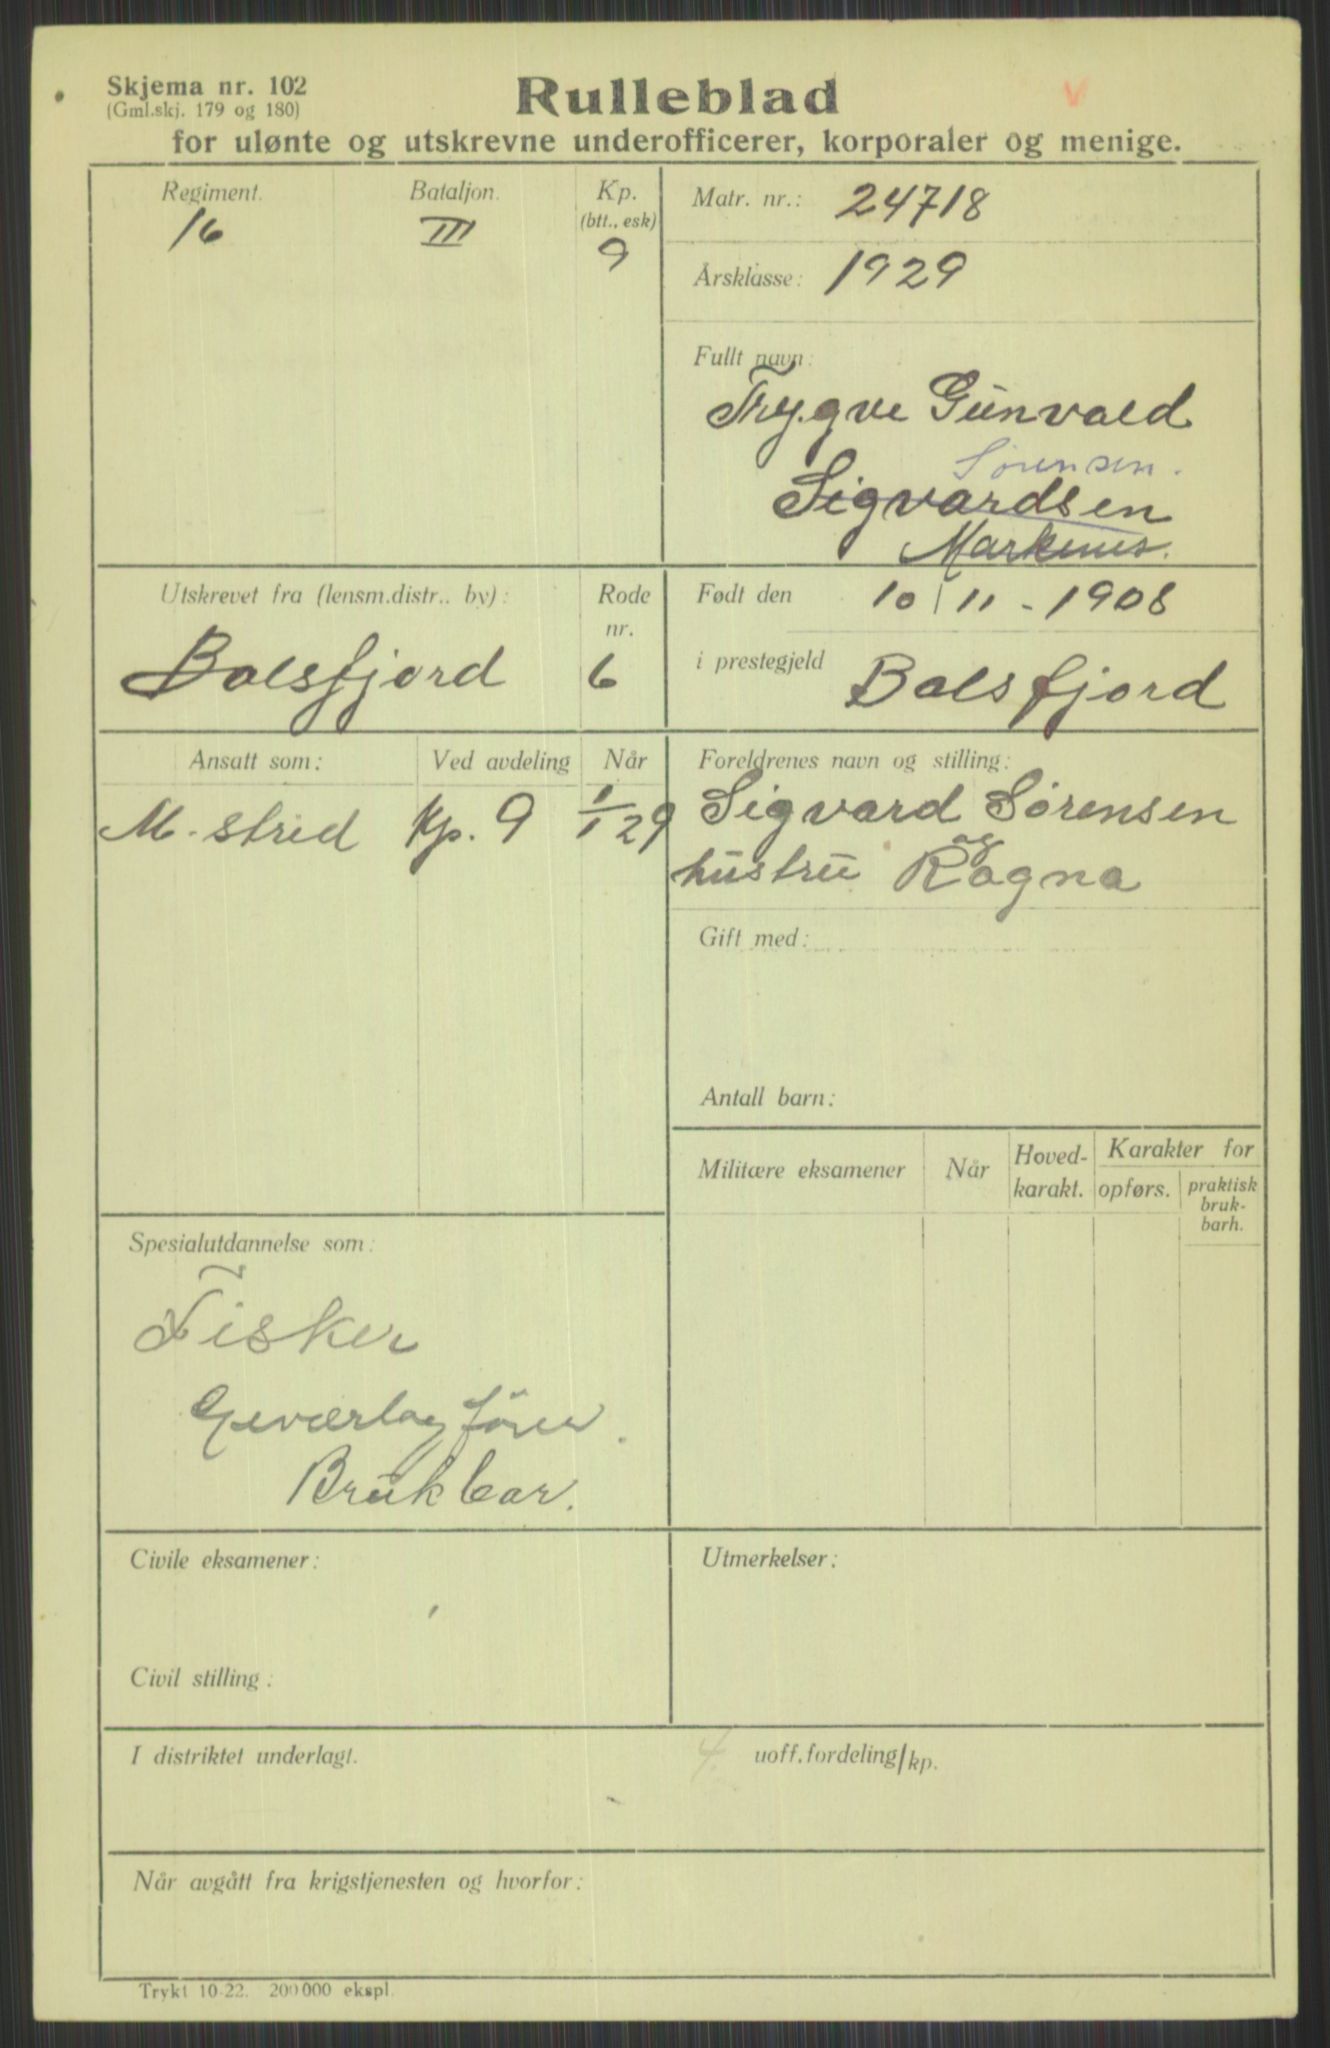 Skjema nr. 102
(Gml.skj. 179 og 180)
Rulleblad
for ulønte og utskrevne underofficerer, korporaler og menige.
Regiment.
16
Bataljon.
III
Kp.
(btt., esk)
9
Matr. nr.: 24718
Årsklasse: 1929
Fullt navn:
Trygve Gunvald
Sørensen.
Sigvardsen
Markenes.
Utskrevet fra (lensm.distr.. by):
Balsfjord
Rode
nr.
6
Født den 10/11-1908
i prestegjeld Balsfjord
Ansatt som:
M-strid
Ved avdeling
Kp. 9
Når
1/1 29
Foreldrenes navn og stilling:
Sigvard Sørensen
og
hustru Ragna
Gift med:
Antall barn:
Militære eksamener
Når
Hoved-
karakt.
Karakter for
opførs.
praktisk
bruk-
barh.
Spesialutdannelse som:
Fisker
Geværlagfører.
Brukbar.
Civile eksamener:
Civil stilling:
Utmerkelser:
I distriktet underlagt.
4. uoff.fordeling/kp.
Når avgått fra krigstjenesten og hvorfor:
Trykt 10-22. 200 000 ekspl.